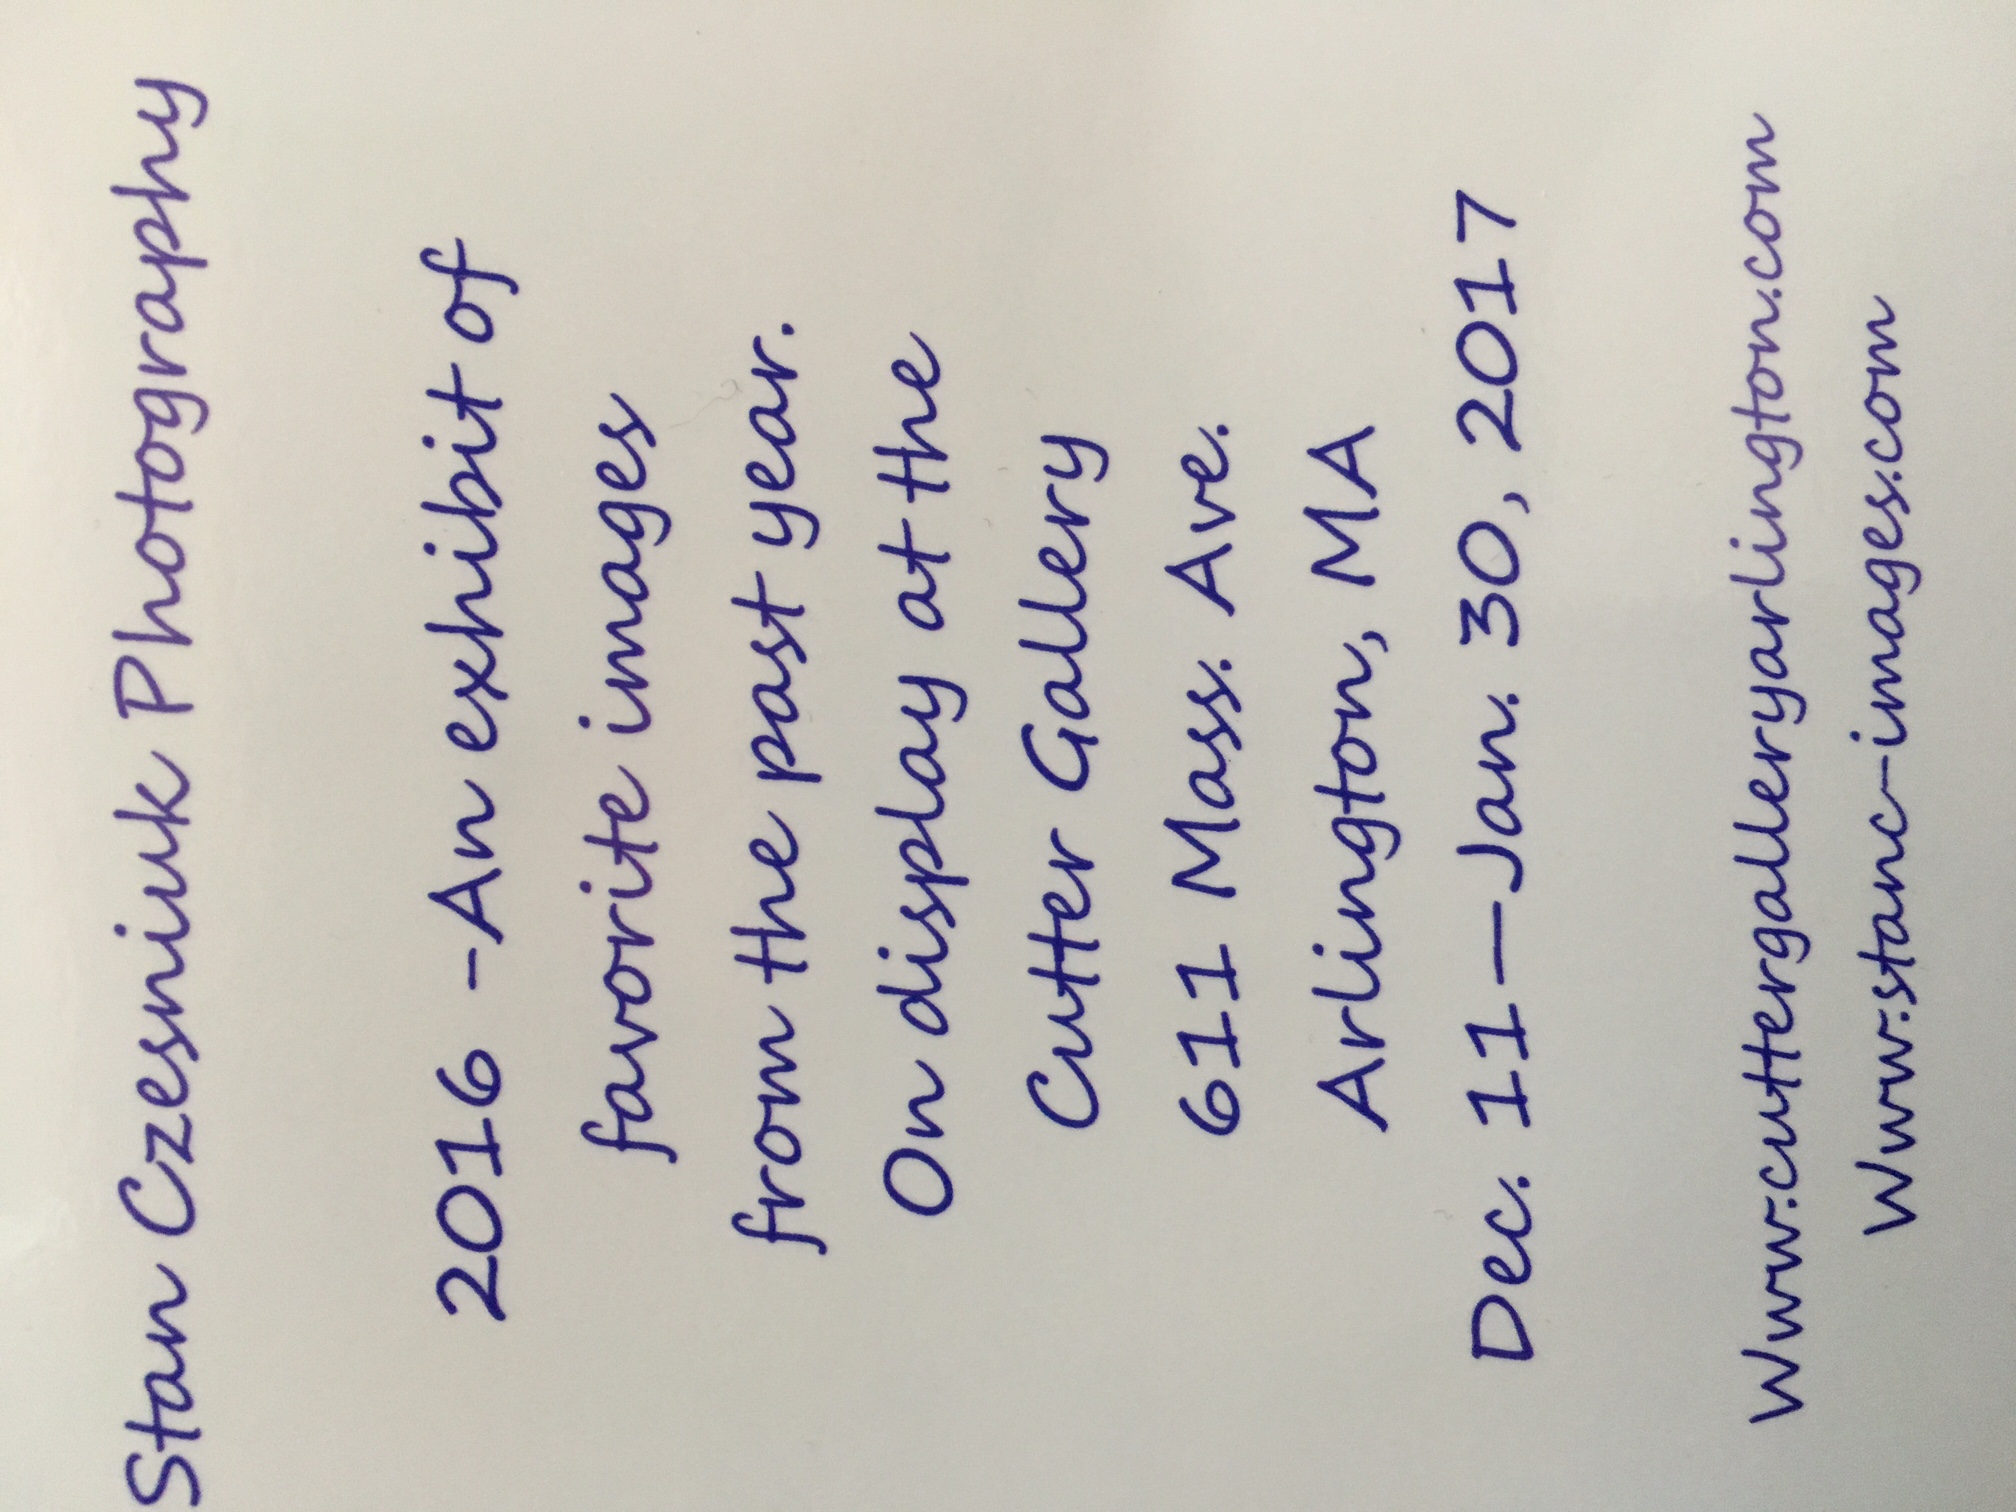 Stan Czesniuk Photography
2016 -An exhibit of
favorite images
from the past year.
On display at the
Cutter Gallery
611 Mass. Ave.
Arlington, MA
Dec. 11—Jan. 30, 2017
Www.cuttergalleryarlington.com
Www.stanc-images.com